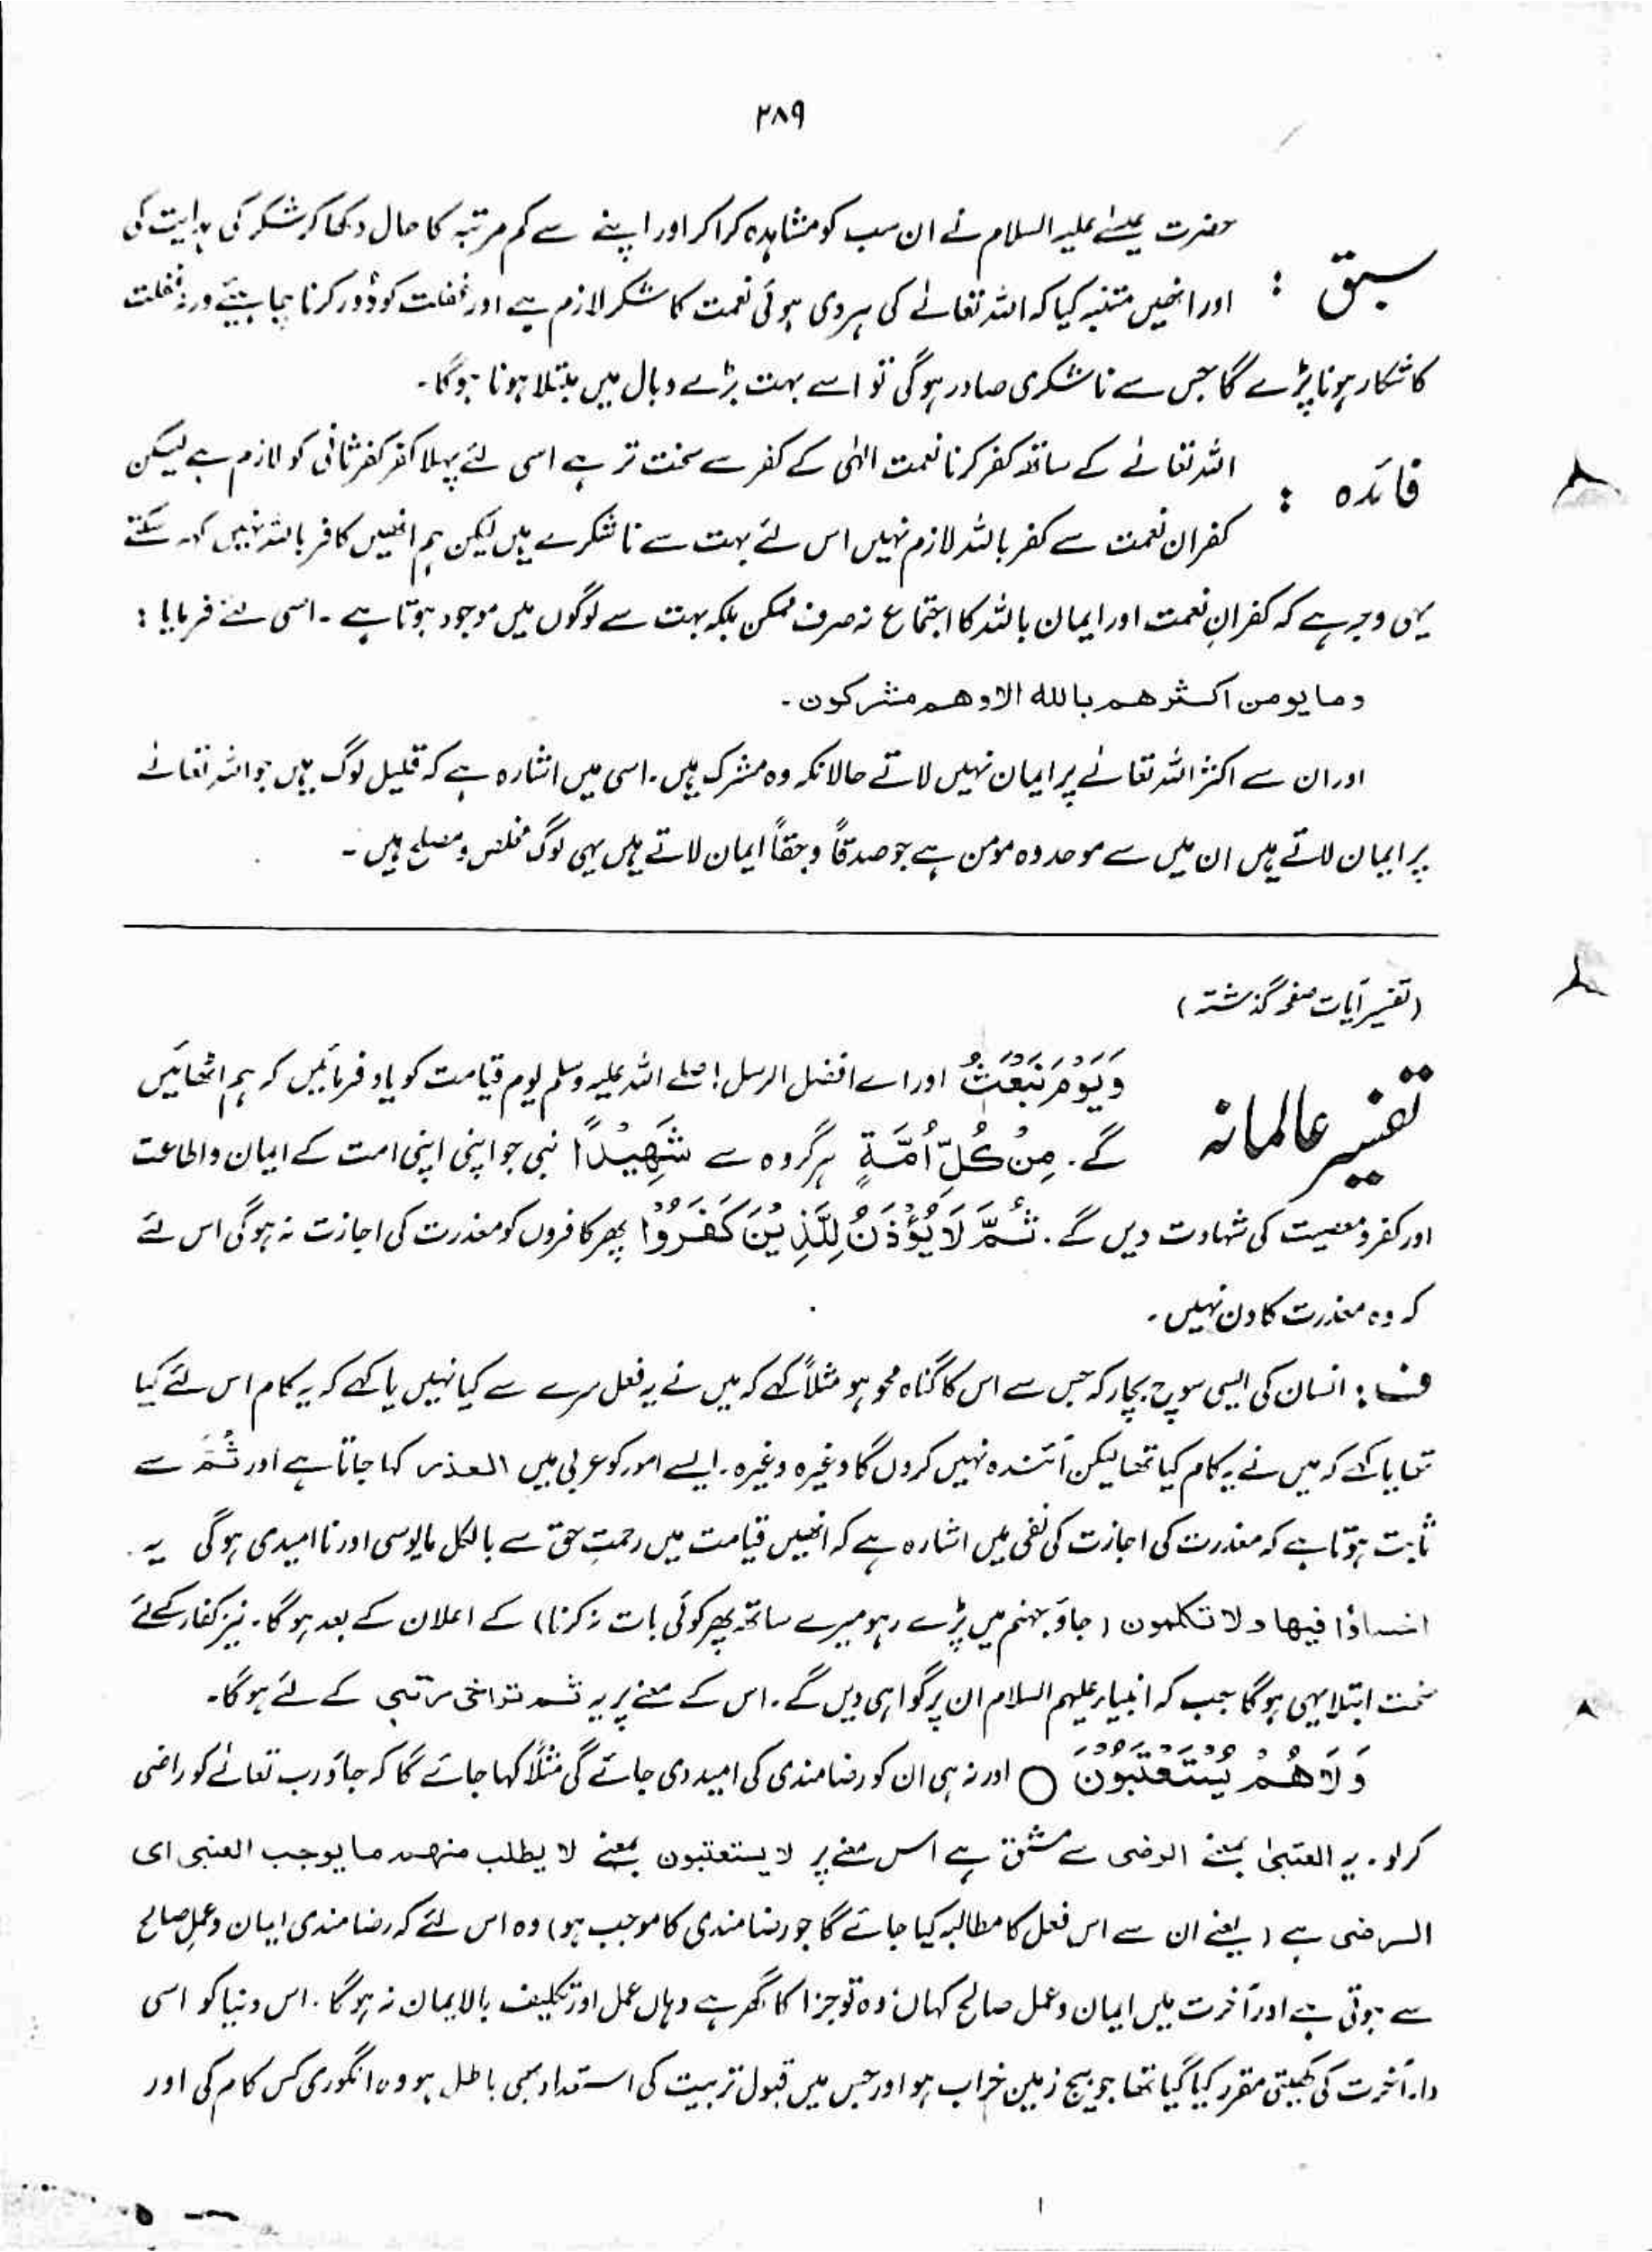 ۲۸۹
حضرت عیسٰے علیہ السلام نے ان سب کو مشاہدہ کرا کر اور اپنے سے کم مرتبہ کا حال دکھا کر شکر کی ہدایت کی
سبق :
اور انھیں متنبہ کیا کہ اللہ تعالےٰ کی ہر دی ہوئی نعمت کا شکر لازم ہے اور غفلت کو دُور کرنا چاہیئے ورنہ غفلت
کا شکار ہونا پڑے گا جس سے ناشکری صادر ہوگی تو اسے بہت بڑے وبال میں مبتلا ہونا ہوگا۔
اللہ تعالےٰ کے ساتھ کفر کرنا نعمت الہٰی کے کفر سے سخت تر ہے اسی لئے پہلا کفر کفر ثانی کو لازم ہے لیکن
فائدہ :
کفران نعمت سے کفر باللہ لازم نہیں اس لئے بہت سے ناشکرے ہیں لیکن ہم انھیں کافر باللہ نہیں کہہ سکتے
یہی وجہ ہے کہ کفرانِ نعمت اور ایمان باللہ کا اجتماع نہ صرف ممکن بلکہ بہت سے لوگوں میں موجود ہوتا ہے ۔ اسی لئے فرمایا :
وما یومن اکثرھم باللہ الا وھم مشرکون ۔
اور ان سے اکثر اللہ تعالےٰ پر ایمان نہیں لاتے حالانکہ وہ مشرک ہیں ۔ اسی میں اشارہ ہے کہ قلیل لوگ ہیں جو اللہ تعالےٰ
پر ایمان لاتے ہیں ان میں سے موحد وہ مومن ہے جو صدقاً وحقاً ایمان لاتے ہیں یہی لوگ مخلص و مصلح ہیں ۔
(تفسیر آیات صفحہ گذشتہ)
وَیَوْمَ نَبْعَثُ اور اے افضل الرسل! صلے اللہ علیہ وسلم یوم قیامت کو یاد فرمائیں کہ ہم اٹھائیں
تفسیر عالمانہ
گے ۔ مِنْ کُلِّ اُمَّۃٍ ہر گروہ سے شَھِیْدًا نبی جو اپنی اپنی امت کے ایمان واطاعت
اور کفر و معصیت کی شہادت دیں گے ۔ ثُمَّ لَا یُؤْذَنُ لِلَّذِیْنَ کَفَرُوْا پھر کافروں کو معذرت کی اجازت نہ ہوگی اس لئے
کہ وہ معذرت کا دن نہیں ۔
ف : انسان کی ایسی سوچ بچار کہ جس سے اس کا گناہ محو ہو مثلاً کہے کہ میں نے یہ فعل سرے سے کیا نہیں یا کہے کہ یہ کام اس لئے کیا
تھا یا کہے کہ میں نے یہ کام کیا تھا لیکن آئندہ نہیں کروں گا وغیرہ وغیرہ ۔ ایسے امور کو عربی میں العذر کہا جاتا ہے اور ثُمَّ سے
ثابت ہوتا ہے کہ معذرت کی اجازت کی نفی میں اشارہ ہے کہ انھیں قیامت میں رحمتِ حق سے بالکل مایوسی اور ناامیدی ہوگی یہ
اخساؤا فیھا ولا تکلمون (جاؤ جہنم میں پڑے رہو میرے ساتھ پھر کوئی بات نہ کرنا) کے اعلان کے بعد ہوگا ۔ نیز کفار کے لئے
سخت ابتلا یہی ہوگا جب کہ انبیاء علیہم السلام ان پر گواہی دیں گے ۔ اس کے معنے پر یہ ثم تراخی مرتبی کے لئے ہوگا ۔
وَلَا ھُمْ یُسْتَعْتَبُوْنَ ○ اور نہ ہی ان کو رضامندی کی امید دی جائے گی مثلًا کہا جائے گا کہ جاؤ رب تعالےٰ کو راضی
کرلو ۔ یہ العتبیٰ بمعنے الرضی سے مشتق ہے اس معنے پر لا یستعتبون بمعنے لا یطلب منھم ما یوجب العتبی ای
الرضی ہے (یعنے ان سے اس فعل کا مطالبہ کیا جائے گا جو رضامندی کا موجب ہو) وہ اس لئے کہ رضامندی ایمان وعمل صالح
سے ہوتی ہے اور آخرت میں ایمان وعمل صالح کہاں وہ تو جزا کا گھر ہے وہاں عمل اور تکلیف بالایمان نہ ہوگا ۔ اس دنیا کو اسی
دار آخرت کی کھیتی مقرر کیا گیا تھا جو بیج زمین خراب ہو اور جس میں قبول تربیت کی استعداد ہی باطل ہو وہ انگوری کس کام کی اور